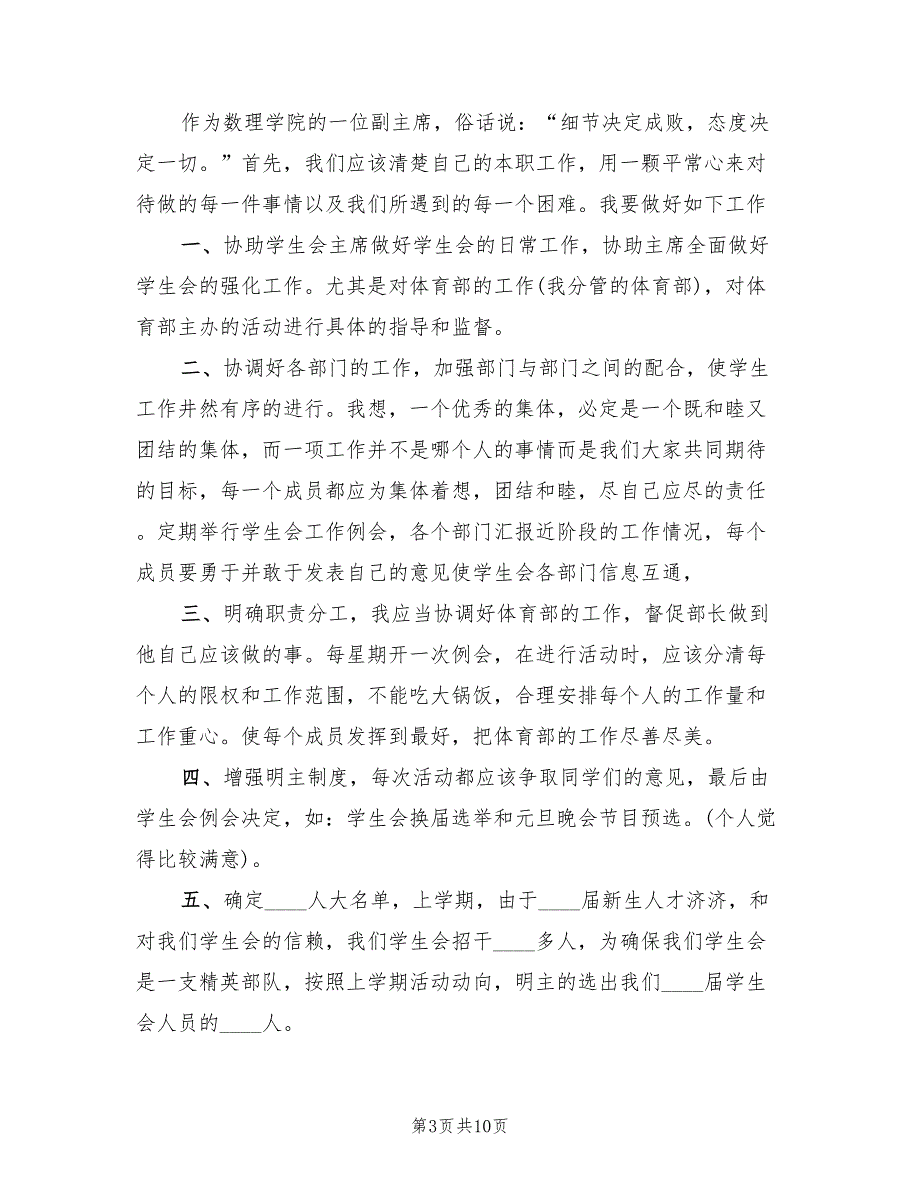 作为数理学院的一位副主席，俗话说：“细节决定成败，态度决
定一切。”首先，我们应该清楚自己的本职工作，用一颗平常心来对
待做的每一件事情以及我们所遇到的每一个困难。我要做好如下工作
一、协助学生会主席做好学生会的日常工作，协助主席全面做好
学生会的强化工作。尤其是对体育部的工作(我分管的体育部)，对体
育部主办的活动进行具体的指导和监督。
二、协调好各部门的工作，加强部门与部门之间的配合，使学生
工作井然有序的进行。我想，一个优秀的集体，必定是一个既和睦又
团结的集体，而一项工作并不是哪个人的事情而是我们大家共同期待
的目标，每一个成员都应为集体着想，团结和睦，尽自己应尽的责任
。定期举行学生会工作例会，各个部门汇报近阶段的工作情况，每个
成员要勇于并敢于发表自己的意见使学生会各部门信息互通，
三、明确职责分工，我应当协调好体育部的工作，督促部长做到
他自己应该做的事。每星期开一次例会，在进行活动时，应该分清每
个人的限权和工作范围，不能吃大锅饭，合理安排每个人的工作量和
工作重心。使每个成员发挥到最好，把体育部的工作尽善尽美。
四、增强明主制度，每次活动都应该争取同学们的意见，最后由
学生会例会决定，如：学生会换届选举和元旦晚会节目预选。(个人觉
得比较满意)。
五、确定____人大名单，上学期，由于____届新生人才济济，和
对我们学生会的信赖，我们学生会招干____多人，为确保我们学生会
是一支精英部队，按照上学期活动动向，明主的选出我们____届学生
会人员的____人。
第3页共10页